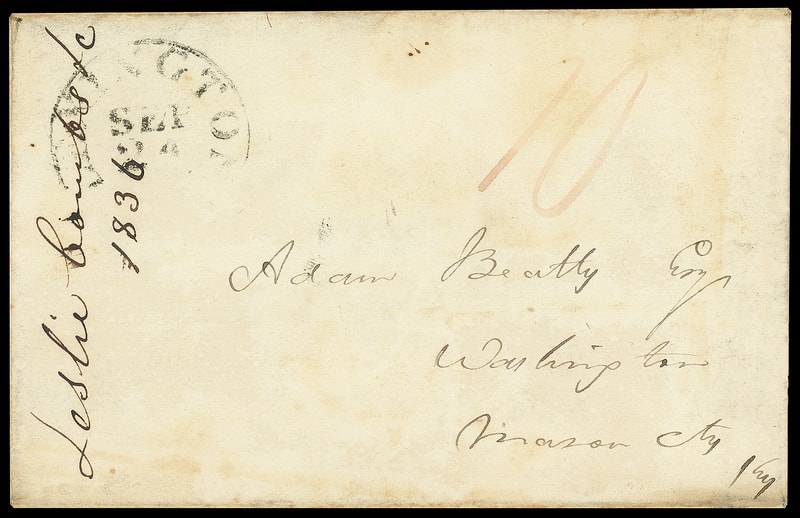 Leslie Combs &c
1836
INGTON
SEP
24
10
Adam Beatty Esq
Washington
Mason Cty
Ky